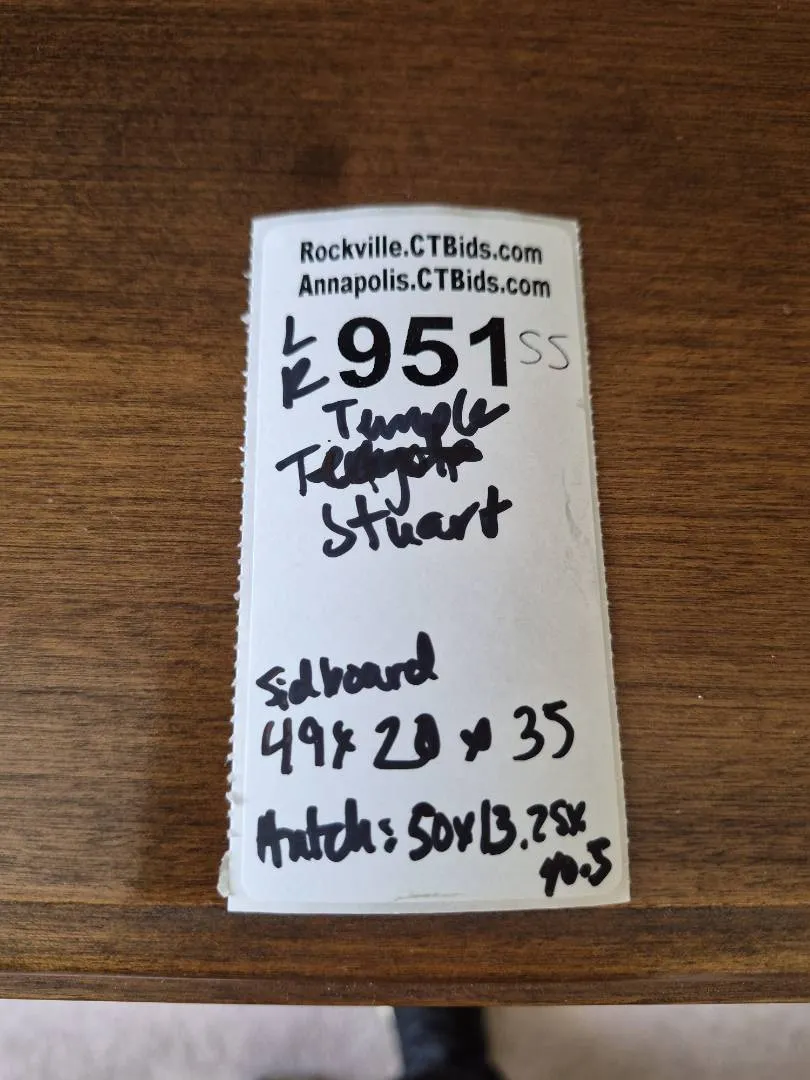 Rockville.CTBids.com
Annapolis.CTBids.com
LR 951 SS
Temple
Stuart
Sidboard
49x 20 x 35
Hutch: 50x13.25x
40.5